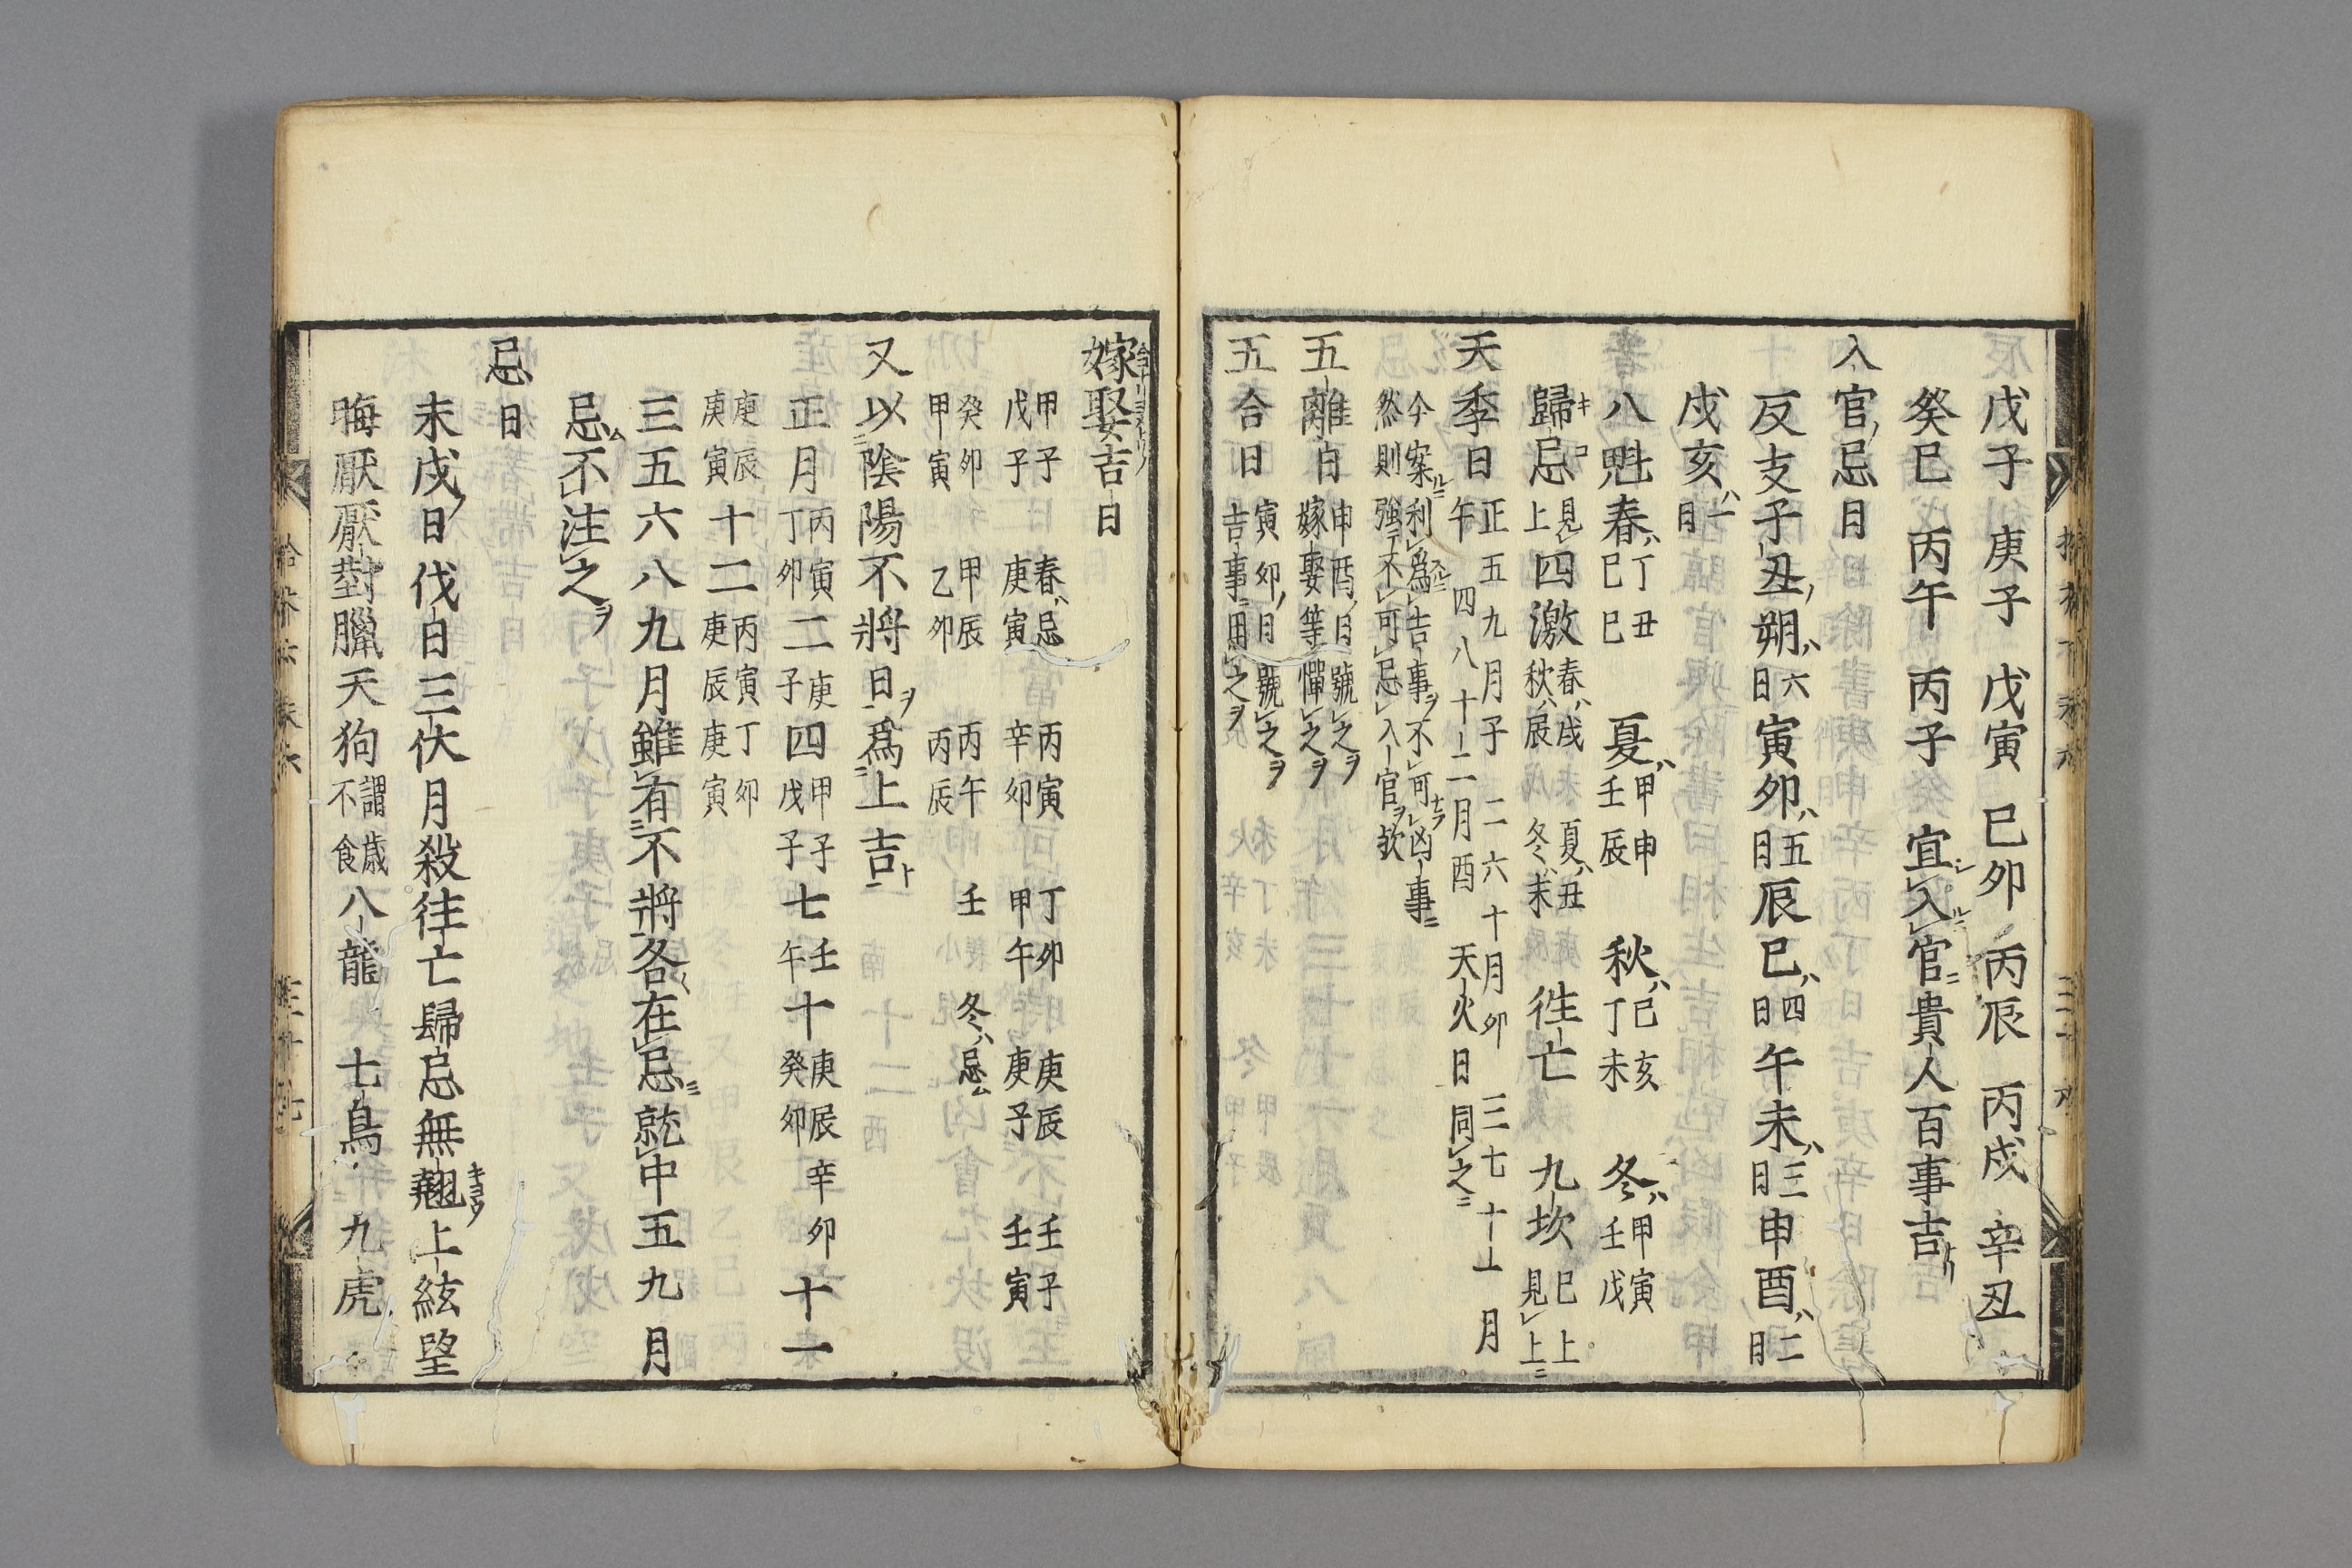 戊子 庚子 戊寅 己卯 丙辰 丙戌 辛丑
癸巳 丙午 丙子 宜入官貴人百事吉
入官ノ忌日
反支子丑ノ朔ハ六日寅卯ハ五日辰巳ハ四日午未ハ三日申酉ハ二日
戌亥ハ一日
八魁春ハ丁丑己巳 夏ハ甲申壬辰 秋ハ己亥丁未 冬ハ甲寅壬戌
歸忌見上四激春ハ戌夏ハ丑秋ハ辰冬ハ未 往亡 九坎巳上見上
天季日正五九月子 二六十月卯 三七十一月午 四八十二月酉 天火日同之
今案利為吉事不可為凶事
然則強不可忌入官歟
五離日申酉ノ日號之嫁娶等憚之ヲ
五合日寅卯ノ日號之吉事用之ヲ
嫁娶吉日
甲子 春ハ忌 丙寅 丁卯 庚辰 壬子
戊子 庚寅 辛卯 甲午 庚子 壬寅
癸卯 甲辰 丙午 壬 冬ハ忌
甲寅 乙卯 丙辰
又以陰陽不將日ヲ為上吉ト
正月丙寅丁卯二庚子四甲子戊子七壬午十庚辰癸卯辛卯十一
庚辰庚寅十二丙寅丁卯庚辰庚寅
三五六八九月雖有不將各在忌就中五九月
忌不注之ヲ
忌日
未戌ノ日伐日三伏月殺往亡歸忌無翹上絃望
晦厭厭對臘天狗謂歳不食八龍 七鳥 九虎